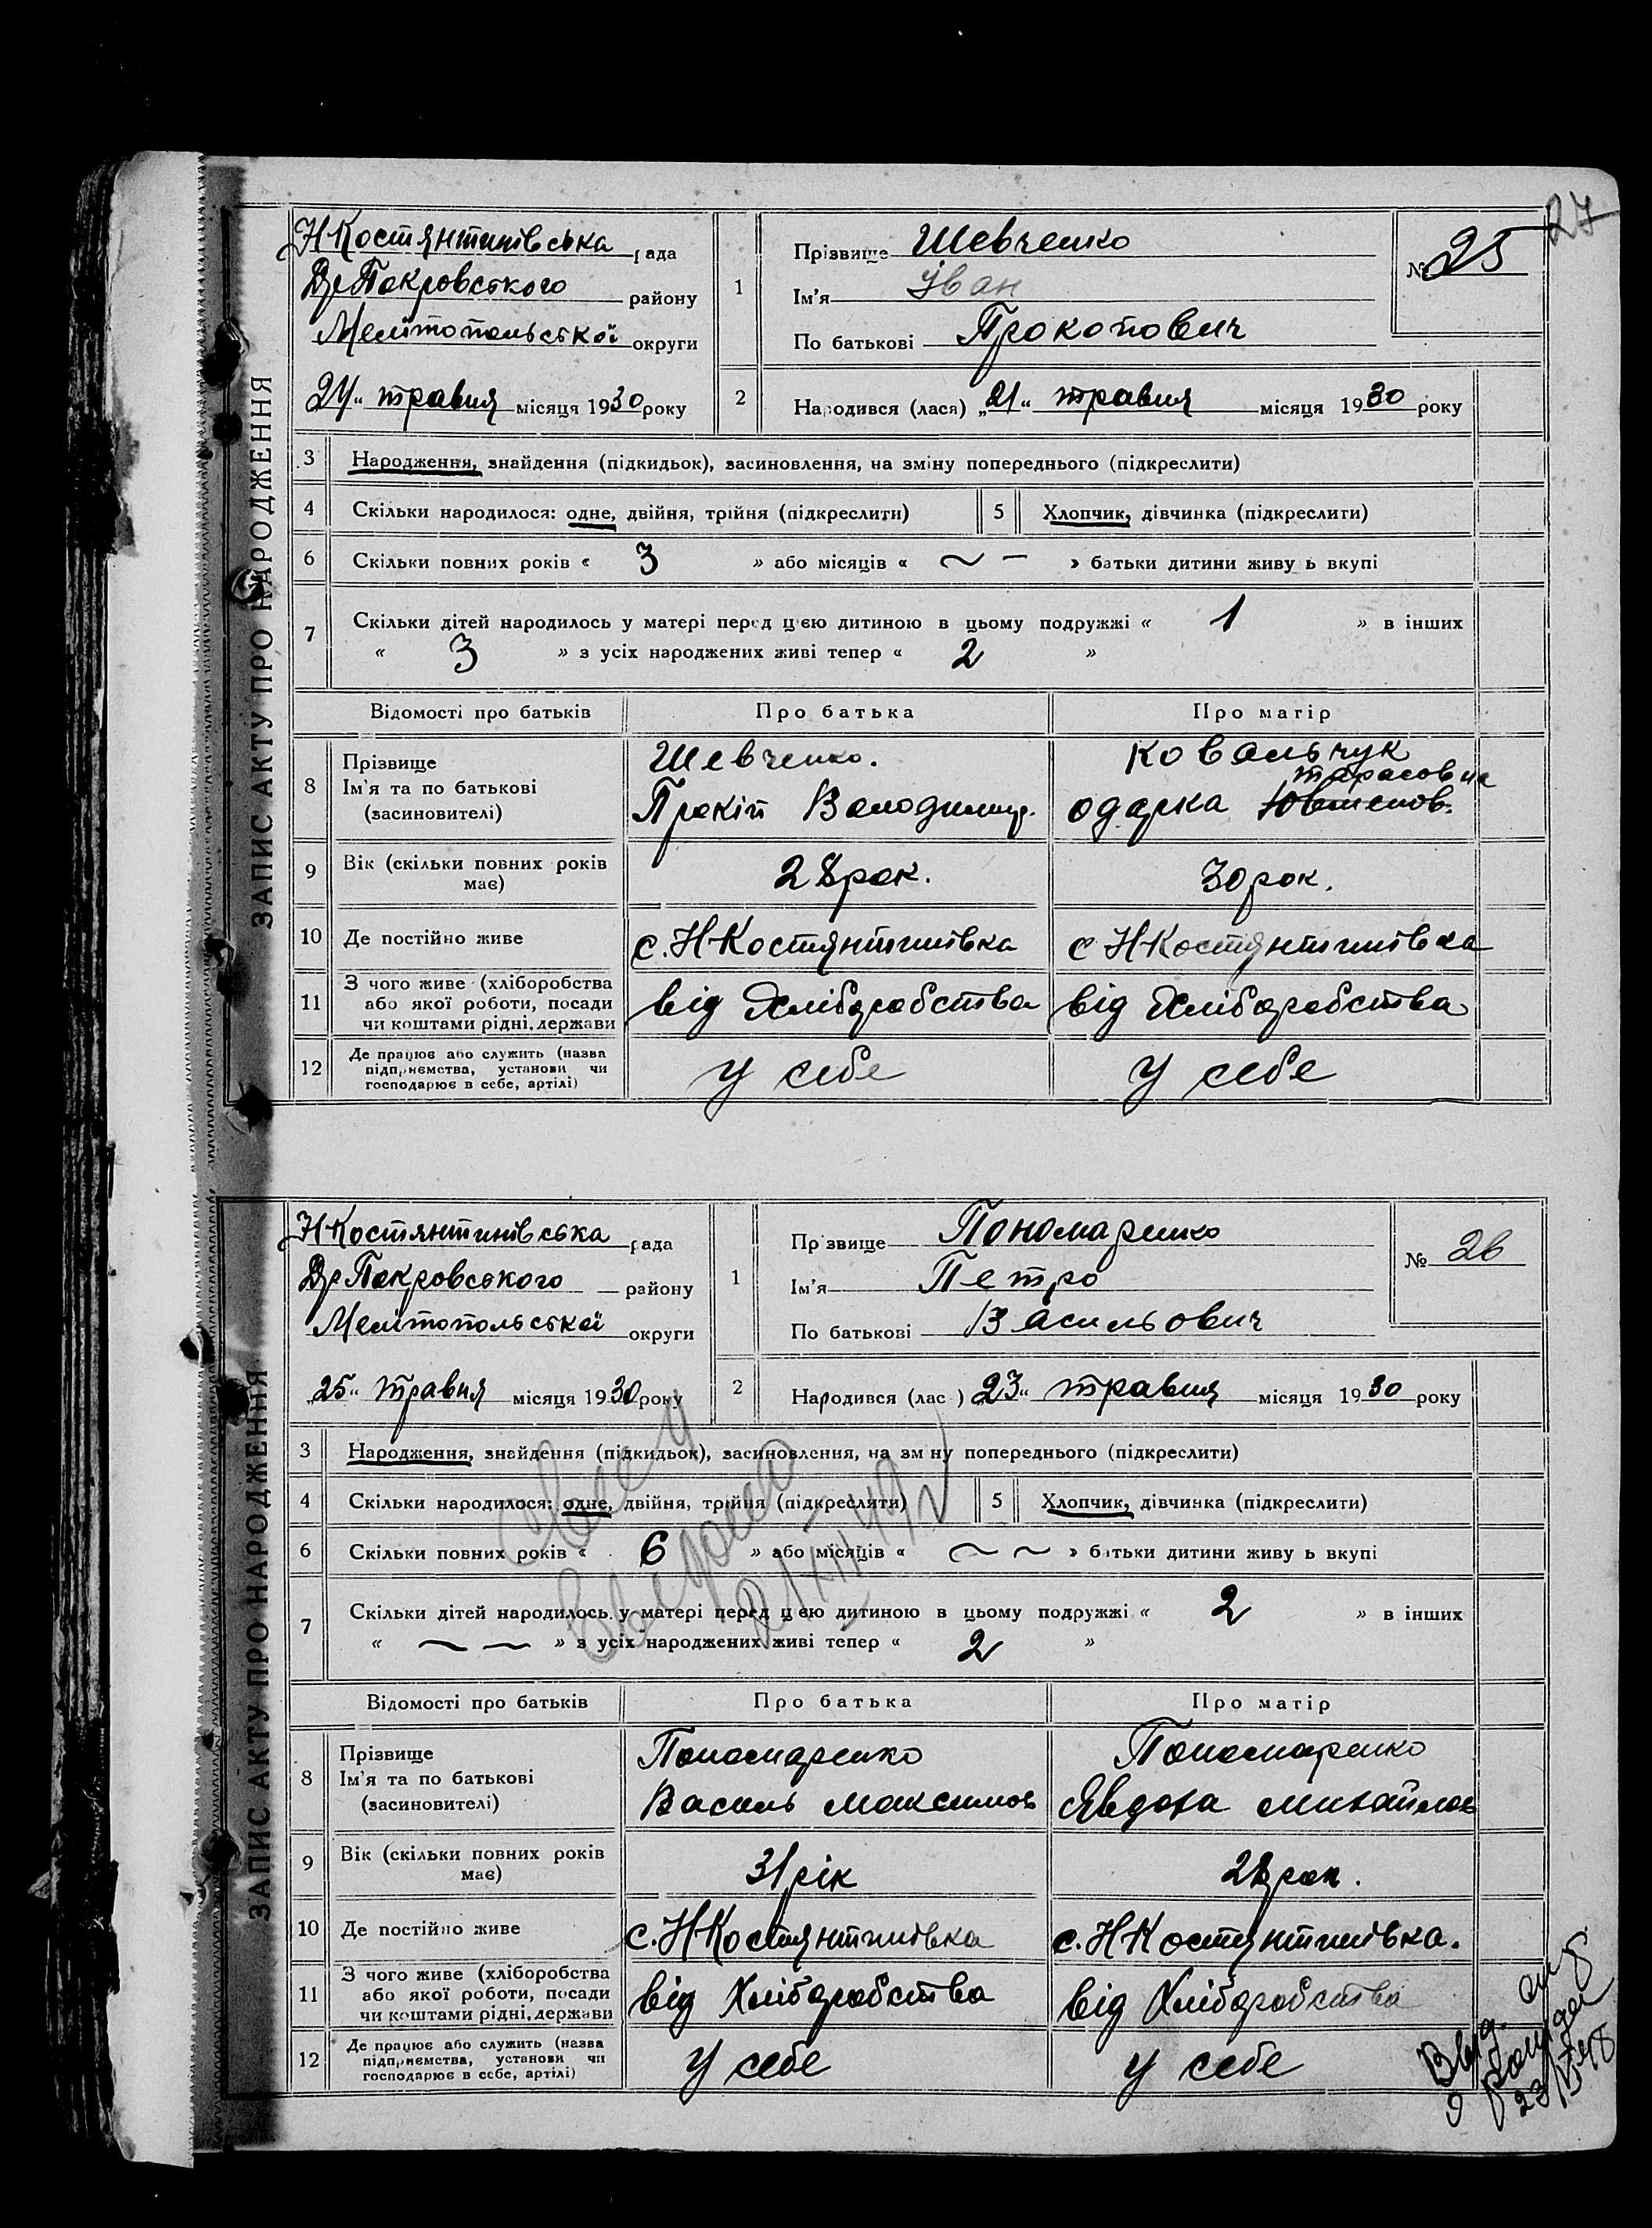 27
ЗАПИС АКТУ ПРО НАРОДЖЕННЯ
Н Костянтинівська рада
Др Покровського району
Мелітопольської округи
24 травня місяця 1930 року
1
Прізвище Шевченко
Ім'я Іван
По батькові Прокопович
№ 25
2
Народився (лася) „21" травня місяця 1930 року
3 Народження, знайдення (підкидьок), засиновлення, на зміну попереднього (підкреслити)
4 Скільки народилося: одне, двійня, трійня (підкреслити) 5 Хлопчик, дівчинка (підкреслити)
6 Скільки повних років « 3 » або місяців « ~ – » батьки дитини живу ь вкупі
7 Скільки дітей народилось у матері перед цією дитиною в цьому подружжі « 1 » в інших
« 3 » з усіх народжених живі тепер « 2 »
Відомості про батьків Про батька Про матір
8 Прізвище Ім'я та по батькові (засиновителі)
Шевченко.
Прокіп Володимир.
Ковальчук
Тарасовна
Одарка
9 Вік (скільки повних років має) 28 рок. 30 рок.
10 Де постійно живе с. Н Костянтинівка с Н Костянтинівка
11 З чого живе (хліборобства або якої роботи, посади чи коштами рідні, держави від Хліборобства від Хліборобства
12 Де працює або служить (назва підприємства, установи чи господарює в себе, артілі) у себе у себе
ЗАПИС АКТУ ПРО НАРОДЖЕННЯ
Н Костянтинівська рада
Др Покровського району
Мелітопольської округи
„25" травня місяця 1930 року
1
Прізвище Пономаренко
Ім'я Петро
По батькові Васильович
№ 26
2
Народився (лас ) 23" травня місяця 1930 року
3 Народження, знайдення (підкидьок), засиновлення, на зм ну попереднього (підкреслити)
4 Скільки народилося: одне, двійня, трійня (підкреслити) 5 Хлопчик, дівчинка (підкреслити)
6 Скільки повних років « 6 » або місяців « ~ ~ » батьки дитини живу ь вкупі
7 Скільки дітей народилось у матері перед цією дитиною в цьому подружжі « 2 » в інших
« ~ ~ » з усіх народжених живі тепер « 2 »
Відомості про батьків Про батька Про матір
8 Прізвище Ім'я та по батькові (засиновителі)
Пономаренко
Василь Максимов
Пономаренко
Явдоха Михайлов
9 Вік (скільки повних років має) 31 рік 28 рок.
10 Де постійно живе с. Н Костянтинівка с. Н Костянтинівка.
11 З чого живе (хліборобства або якої роботи, посади чи коштами рідні, держави від Хліборобства від Хліборобства
12 Де працює або служить (назва підприємства, установи чи господарює в себе, артілі) у себе у себе